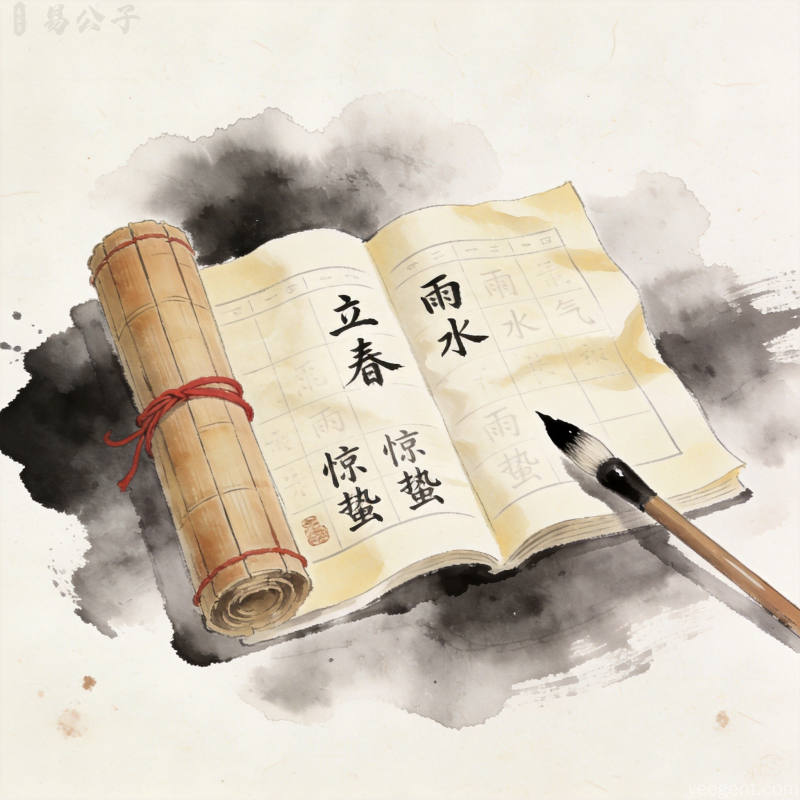 易公子
立春
雨水
惊蛰
惊蛰
雨水
气
雨
雨蛰
yeegent.com